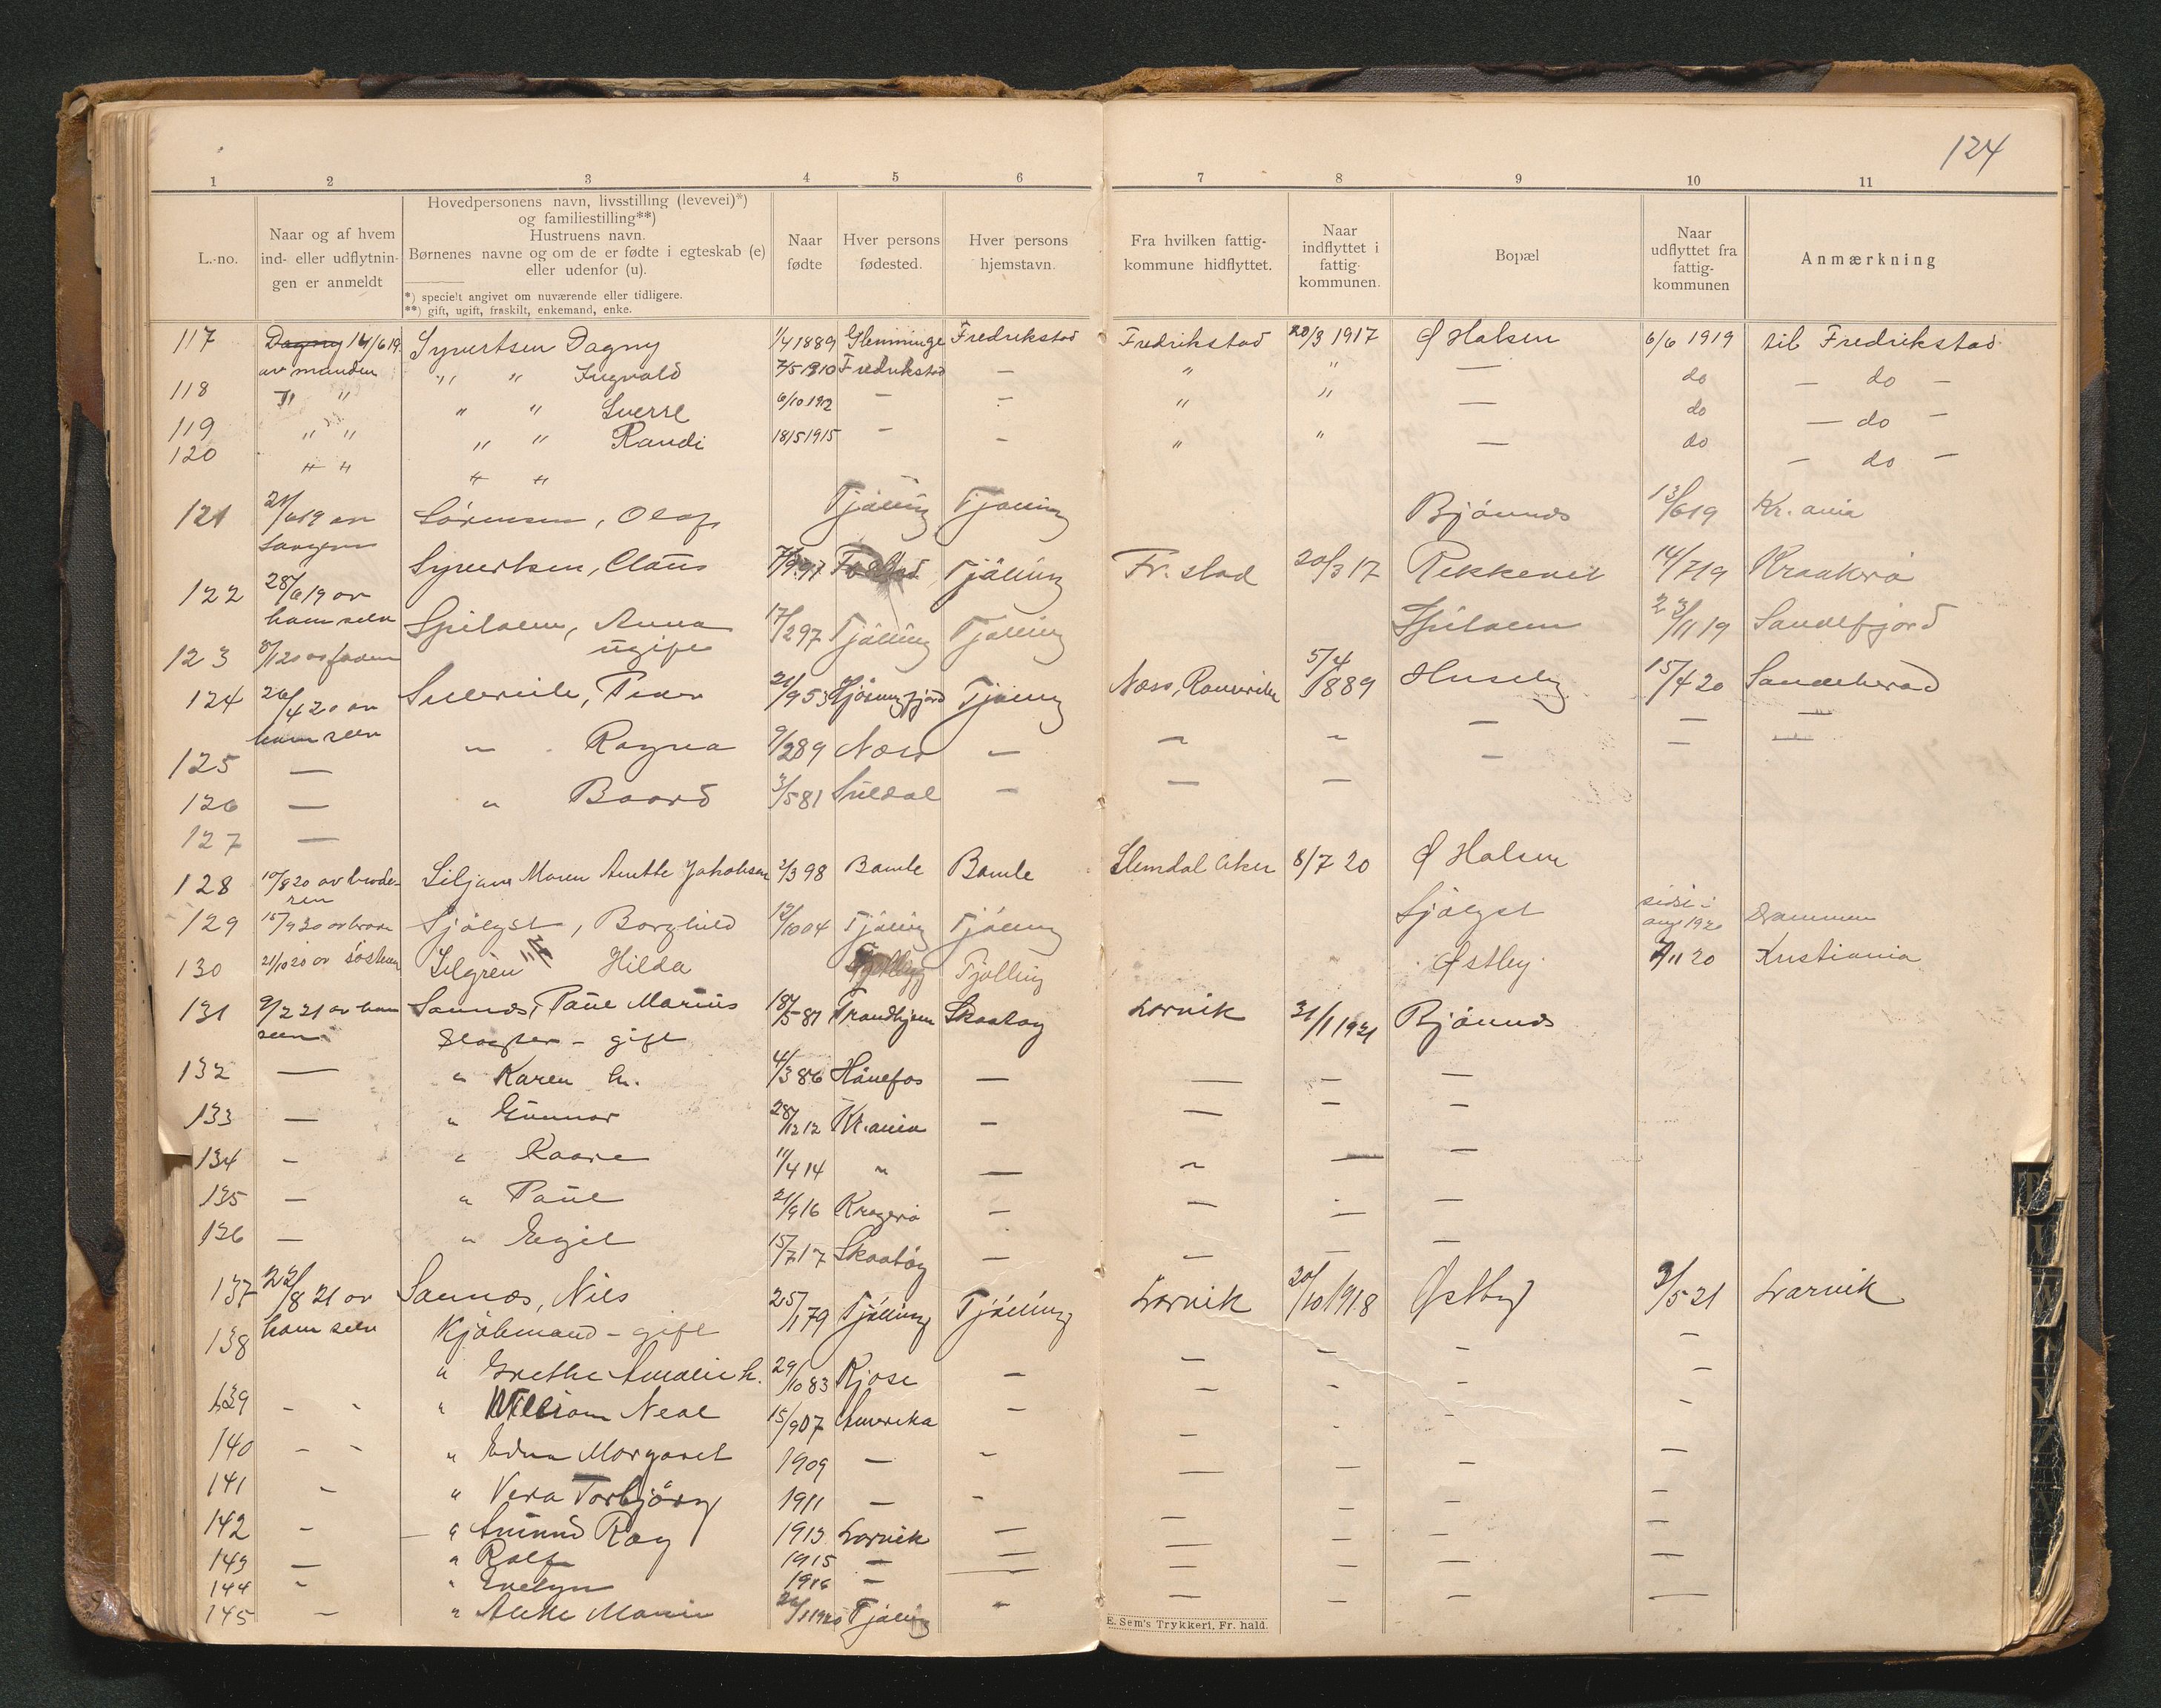 124
1 2 3 4 5 6 7 8 9 10 11
L.-no.
Naar og af hvem
ind- eller udflytnin-
gen er anmeldt
Hovedpersonens navn, livsstilling (levevei)*)
og familiestilling**)
Hustruens navn.
Børnenes navne og om de er fødte i egteskab (e)
eller udenfor (u).
*) specielt angivet om nuværende eller tidligere.
**) gift, ugift, fraskilt, enkemand, enke.
Naar
fødte
Hver persons
fødested.
Hver persons
hjemstavn.
Fra hvilken fattig-
kommune hidflyttet.
Naar
indflyttet i
fattig
kommunen.
Bopæl
Naar
udflyttet fra
fattig-
kommunen
Anmærkning
117 Dagny 14/6 19 Syvertsen Dagny 1/4 1889 Glemminge Fredrikstad Fredrikstad 20/3 1917 Ø Halsen 6/6 1919 til Fredrikstad
av manden " " Ingvald 7/5 1910 Fredrikstad — " " — do — do —
118 " " " " Sverre 6/10 1912 — — " " — do — do —
119 " " " " Randi 18/5 1915 — — " " — do — do —
120 " " " "
121 21/6 19 av Sörensen, Olaf Tjölling Tjölling Bjönnes 13/6 19 Kr.ania
Syvertsen, Claus 97 Tjölling Fr.stad 20/3 17 Rekkevik 14/7 19 Kraakerö
122 28/6 19 av
ham selv Anna 17/2 97 Tjölling Tjölling 23/11 19 Sandefjord
ugift
123 8/1 20 av faderen
124 26/4 20 av Peder 21/9 53 Tjölling Næs, Romerike 5/4 1889 Huseby 15/4 20 Sandeherad
ham selv
" Ragna 9/2 89 Næs — — — — — —
125 —
126 — " Baard 3/5 81 Suldal — — — — — —
127 —
128 10/8 20 av brode- Siljane Maren Anette Jakobsen 2/3 98 Bamle Bamle Slemdal Aker 8/7 20 Ø Halsen
ren
129 15/9 20 av Sjölyst, Borghild 12/10 04 Tjölling Tjölling Sjölyst sidst i Drammen
aug 1920
130 21/10 20 av søsteren Hilda Tjølling Tjølling Østby 1/11 20 Kristiania
131 9/2 21 av ham Sannes, Paul Marius 18/5 81 Trondhjem Skaatøy Larvik 31/1 1921 Bjönnes
selv Slagter - gift
132 — " Karen h. 4/3 86 Hönefos — — — —
133 — " Gunnar 28/12 12 Kr.ania — — — —
134 - " Kaare 11/4 14 " — " — —
135 — " Paul 21/9 16 Kragerö — — — —
136 — " Egil 15/7 17 Skaatöy — — — —
137 22/8 21 av Sannes, Nils 25/1 79 Tjölling Tjölling Larvik 20/10 1918 Østby 3/5 21 Larvik
138 ham selv Kjöbmand - gift
" Grethe Amalie h. 29/10 83 Kjose — — — — —
139 - - " William Neal 15/9 07 Amerika — — - - —
140 - - " Edna Margaret 1909 — - — - - -
141 - " Vera Torbjörg 1911 — - — — — —
142 - — " Amund Ray 1913 Larvik — — — — —
143 — " Rolf 1915 — — — — — —
144 - " Evelyn 1916 — — — — — —
145 — " Marie 1920 Tjölling " — — — —
E. Sem's Trykkeri, Fr. hald.